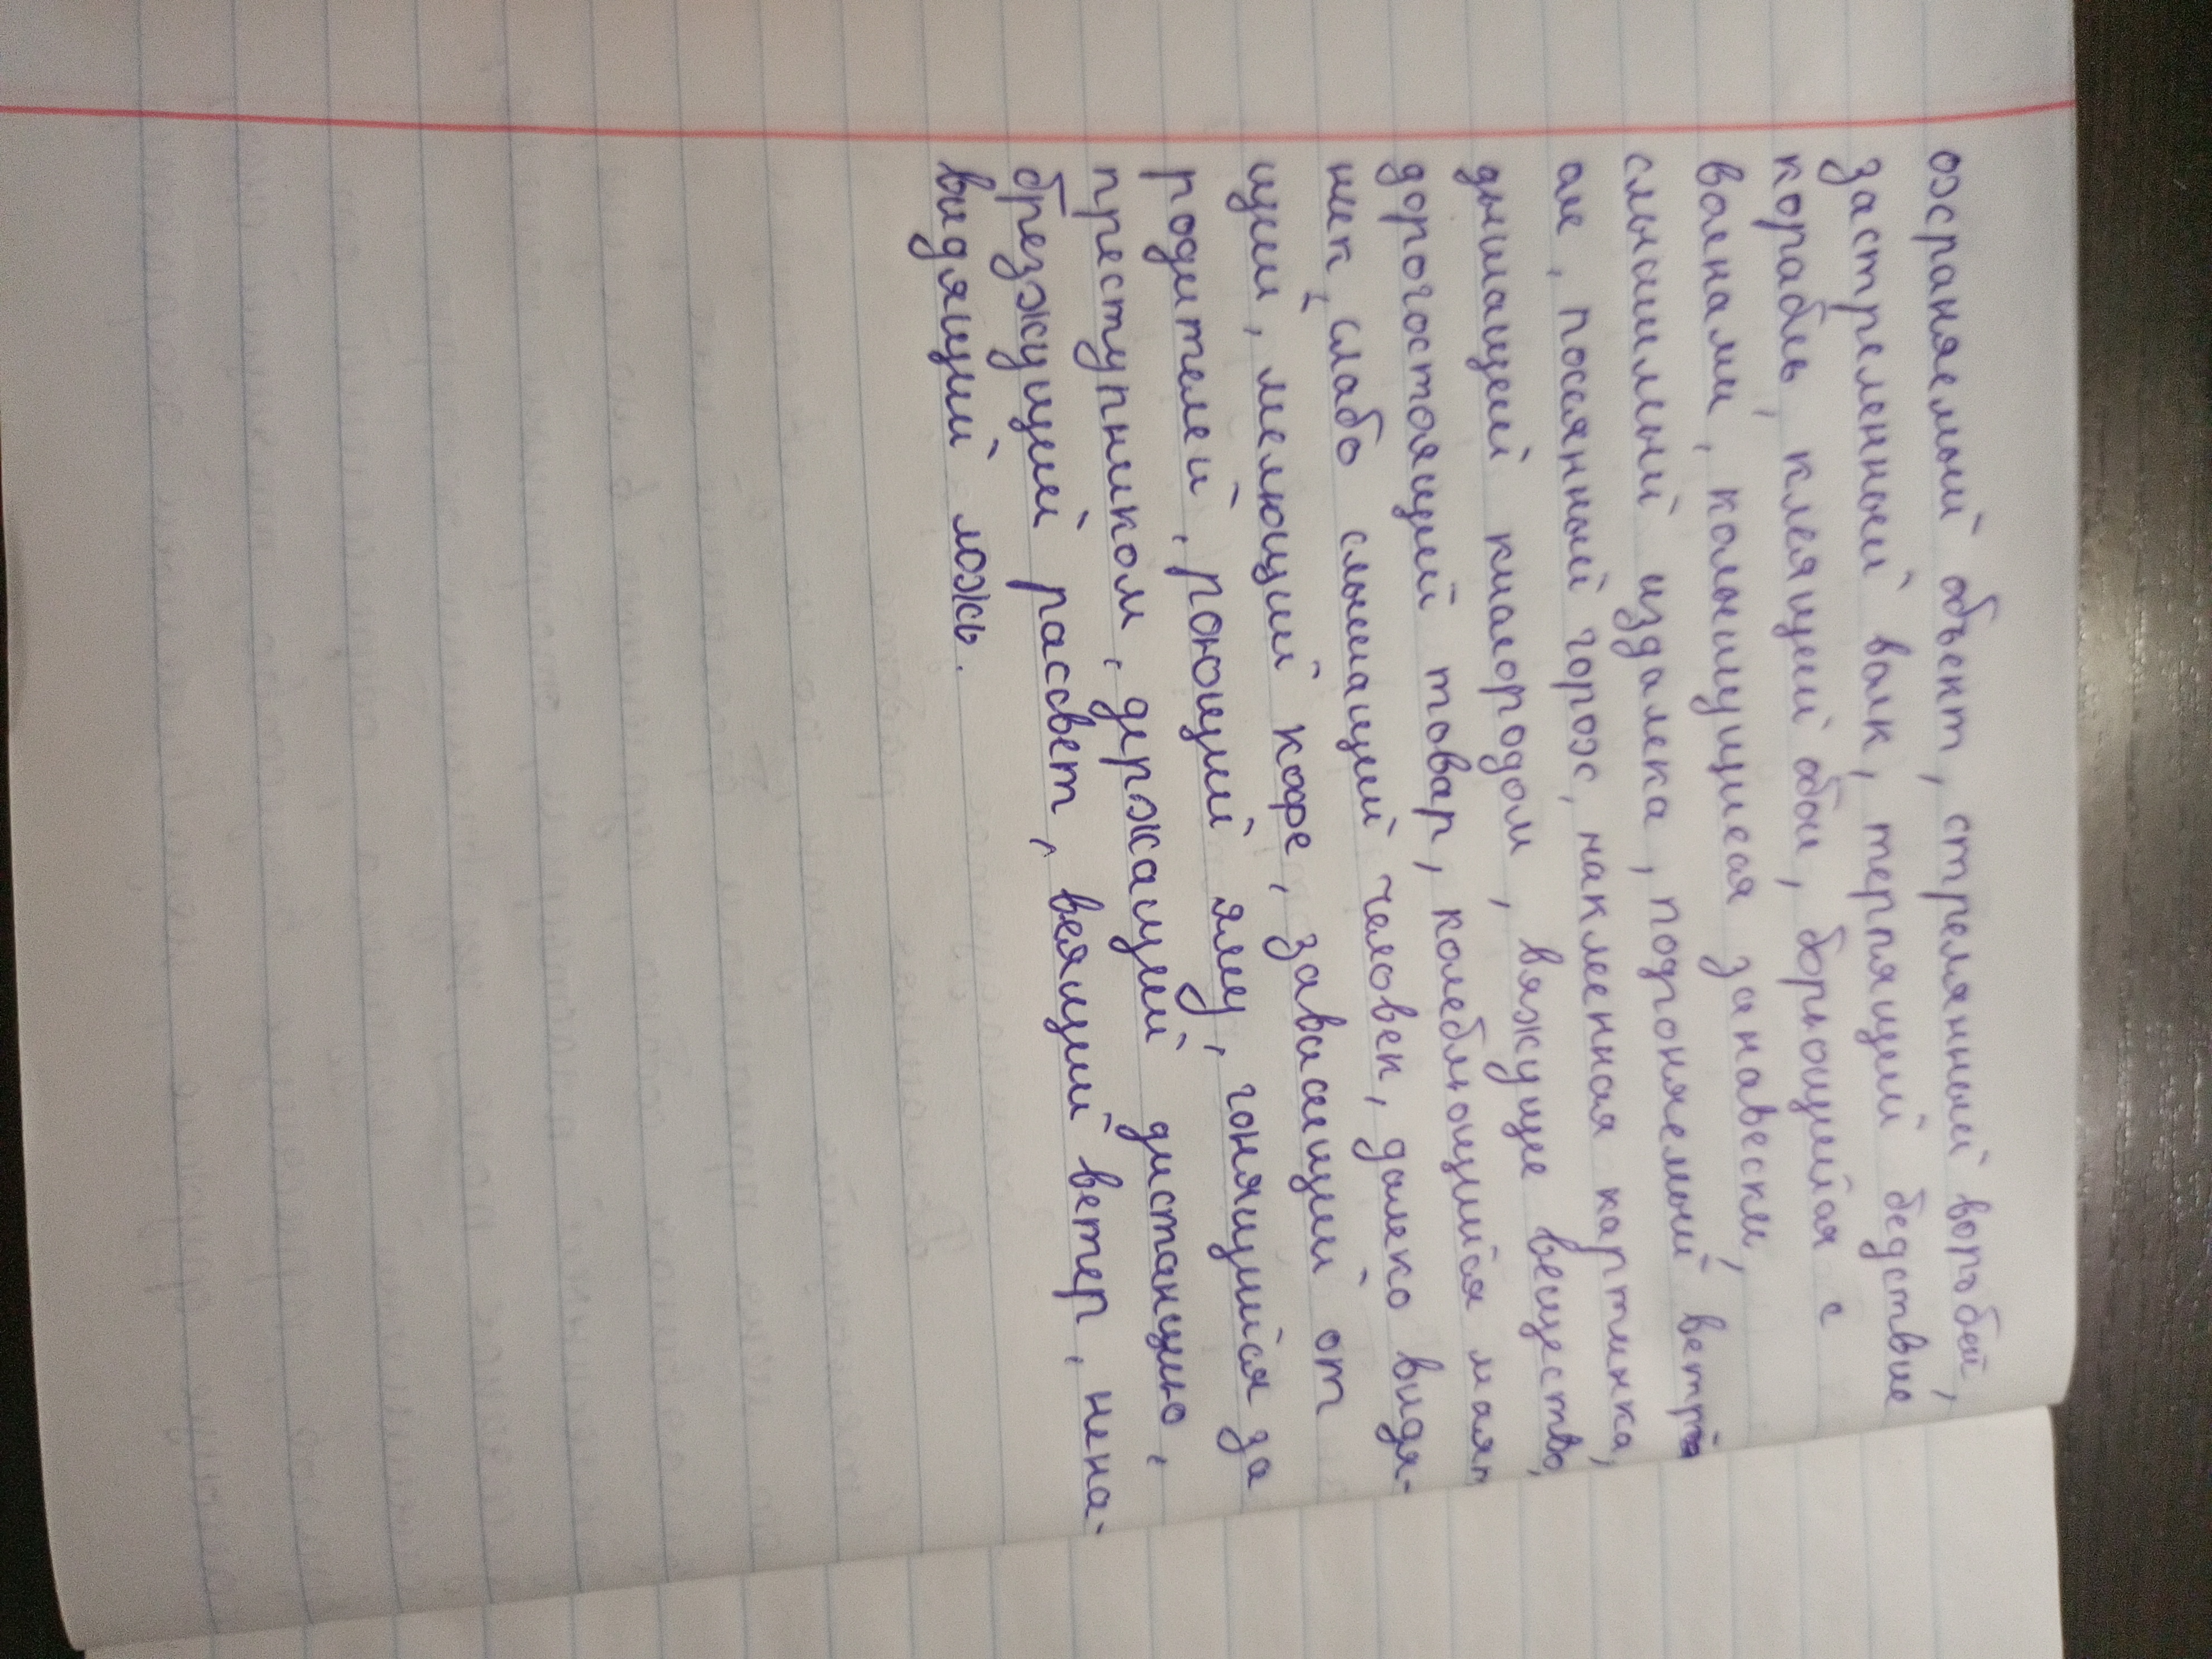 охраняемый объект, стрелянный воробей,
застреленный волк, терпящий бедствие
корабль, клеящий обои, борющийся с
волнами, колышущиеся занавески,
слышимый издалека, подгоняемый ветра
ае, посеянный горох, наклеенная картинка,
дышащей кислородом, вяжущее вещество,
дорогостоящий товар, колеблющийся маят
ник, слабо слышащий человек, далеко видя-
щий, мелющий кофе, зависящий от
родителей, роющий яму, гонящийся за
преступником, держащий дистанцию,
брезжущий рассвет, веящий ветер, нена-
видящий ложь.